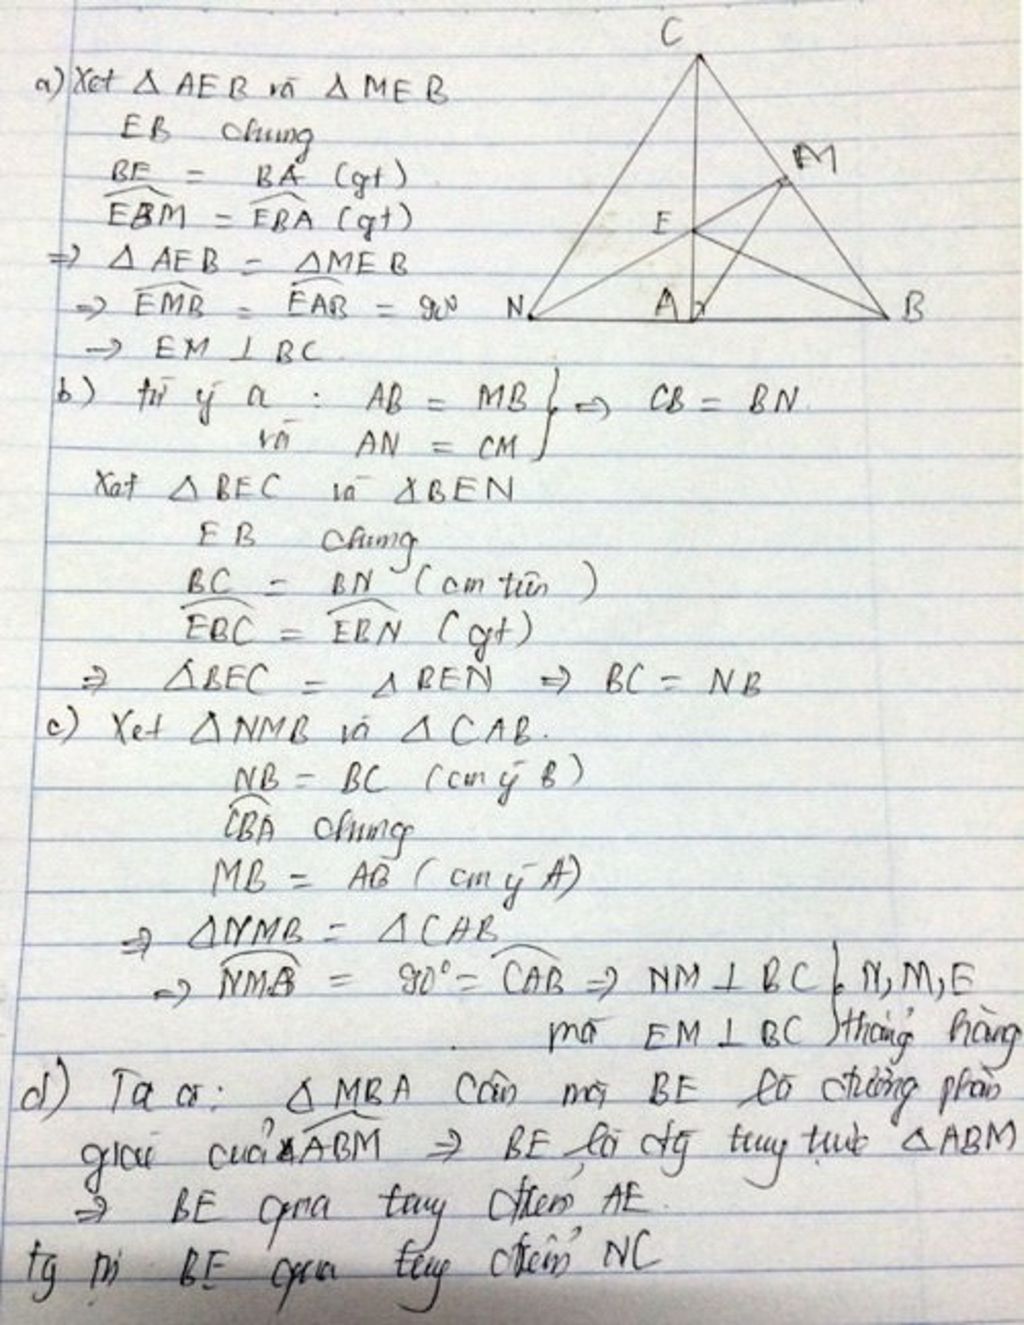 a) Xet Δ AEB và Δ MEB
EB chung
BE = BA (gt)
EBM = EBA (gt)
⇒ Δ AEB = ΔMEB
⇒ EMB = EAB = 90°
→ EM ⊥ BC
C
M
E
N
A
B
b) từ ý a : AB = MB } ⇒ CB = BN
và AN = CM
Xet Δ BEC và ΔBEN
EB chung
BC = BN (cm trên)
EBC = EBN (gt)
⇒ ΔBEC = ΔBEN ⇒ BC = NB
c) Xet ΔNMB và ΔCAB.
NB = BC (cm ý B)
CBA chung
MB = AB (cm ý A)
⇒ ΔNMB = ΔCAB
⇒ NMB = 90° = CAB ⇒ NM ⊥ BC } N, M, E
mà EM ⊥ BC thẳng hàng
d) Ta có: Δ MBA cân mà BE là đường phân
giác của ABM ⇒ BE là đg trung trực ΔABM
⇒ BE qua trung điểm AE
tg tự BE qua trung điểm NC